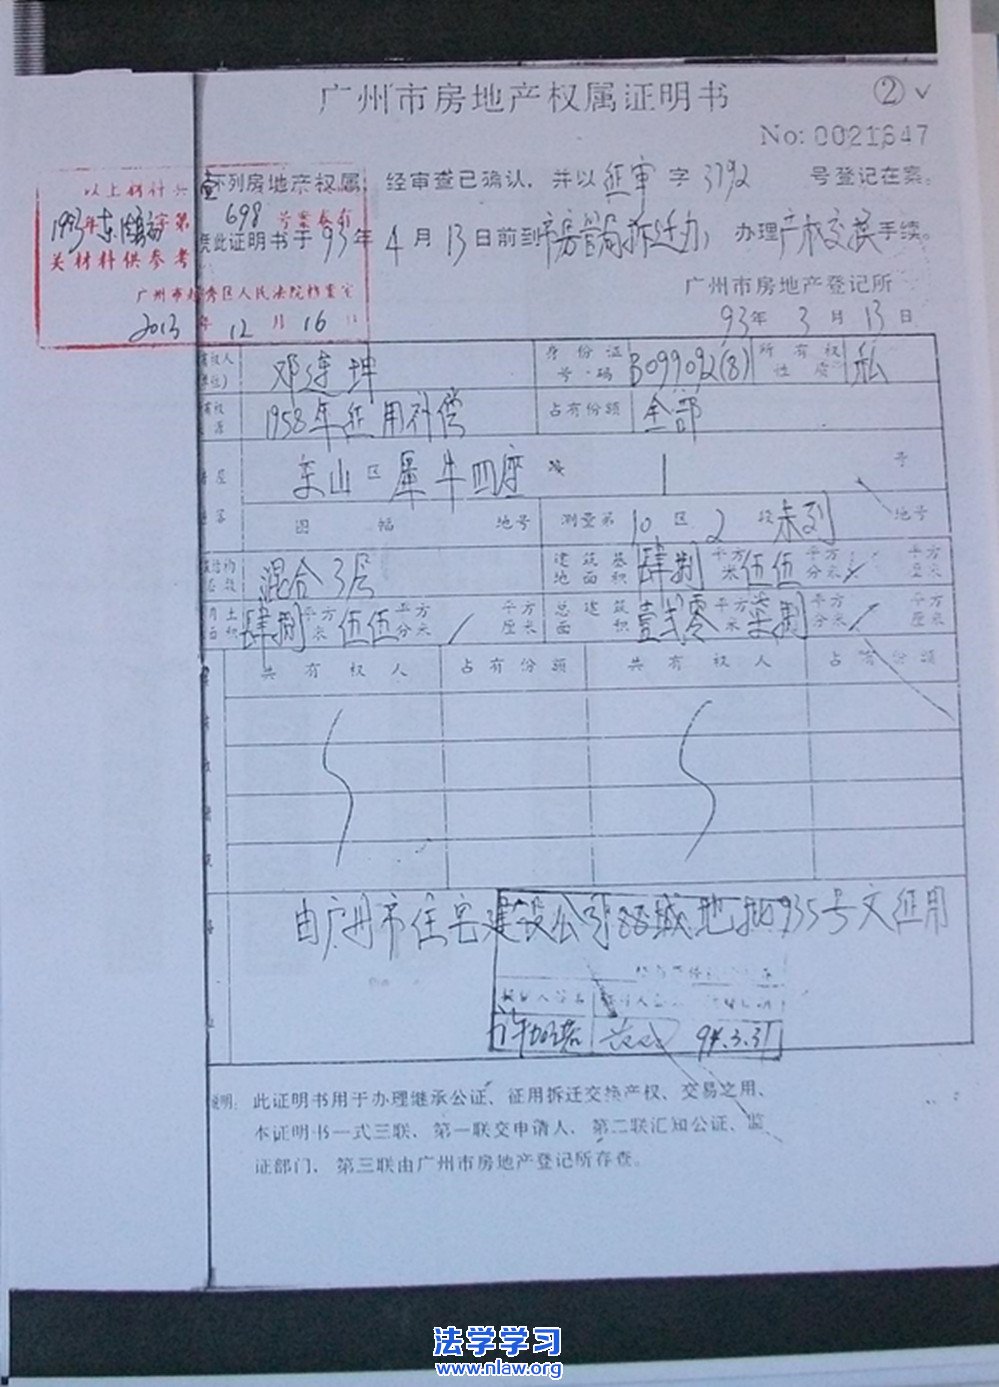 广州市房地产权属证明书
② ✓
No: 0021647
下列房地产权属 经审查已确认，并以征审字3792 号登记在案。
凭此证明书于93年4月13日前到市房管局拆迁办，办理产权交换手续。
广州市房地产登记所
93年3月13日
以上材料共 壹
1993年东法 字第
698 号案卷有
关材料供参考
广州市越秀区人民法院档案室
2013年12月16日
邓连坤 身份证号码 B099092(8) 所有权性质 私
1958年征用补偿 占有份额 全部
东山区犀牛四座 1 号
图幅 地号 测量第10区2段未列地号
混合3层 建筑基地面积 肆捌平方米伍伍平方分米/平方厘米
用土面积 肆捌平方米伍伍平方分米/平方厘米 总建筑面积 壹贰零平方米柒捌平方分米/平方厘米
共有权人 占有份额 共有权人 占有份额
由广州市住宅建设公司88城地批935号文征用
94.3.31
说明：此证明书用于办理继承公证、征用拆迁交换产权、交易之用、
本证明书一式三联、第一联交申请人、第二联汇知公证、监
证部门、第三联由广州市房地产登记所存查。
法学学习
www.nlaw.org